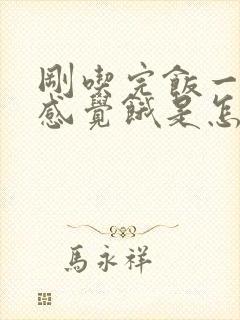 剛喫完飯一
感覺餓是怎
馬永祥